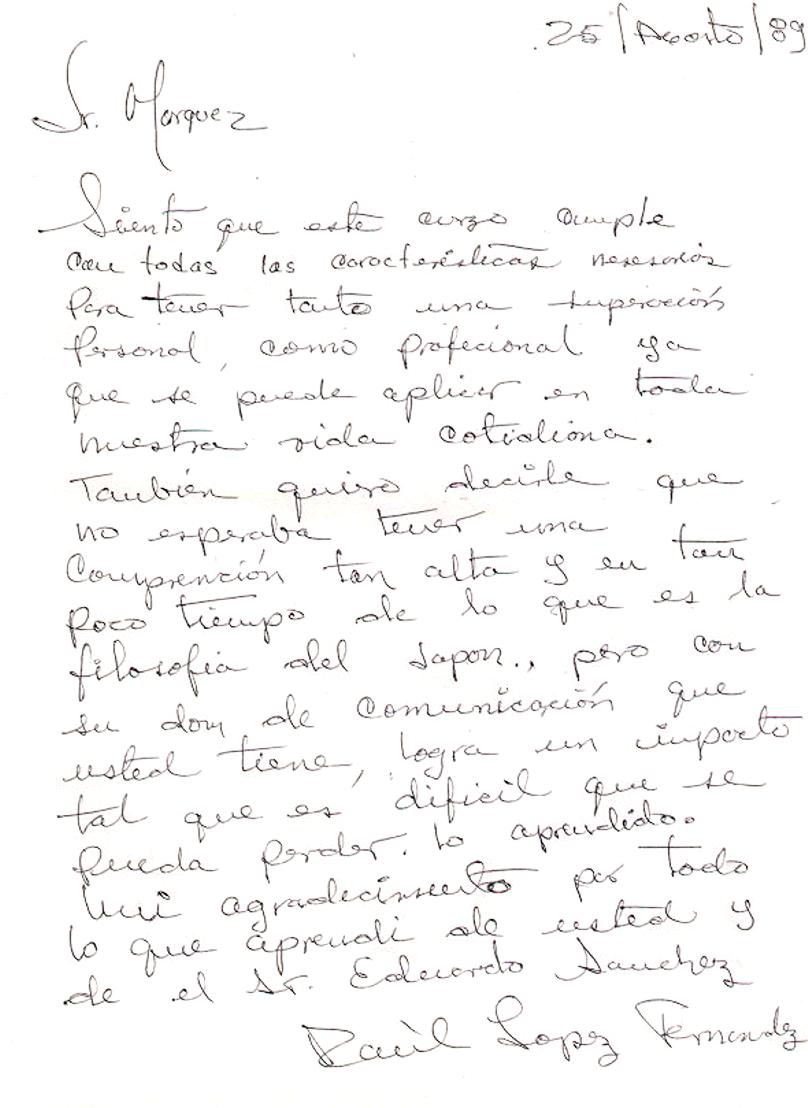 25/Agosto/89
Sr. Marquez
Siento que este curzo cumple
con todas las caracteristicas nesesarias
Para tener tanto una superación
Personal, como profecional ya
que se puede aplicar en toda
nuestra vida cotidiana.
También quiero decirle que
no esperaba tener una
Comprención tan alta y en tan
poco tiempo de lo que es la
filosofia del Japon., pero con
su don de comunicación que
usted tiene, logra un impacto
tal que es dificil que se
pueda perder. lo aprendido.
Mi agradecimiento por todo
lo que aprendi de usted y
de el Sr. Eduardo Sanchez
Raúl Lopez Fernandez